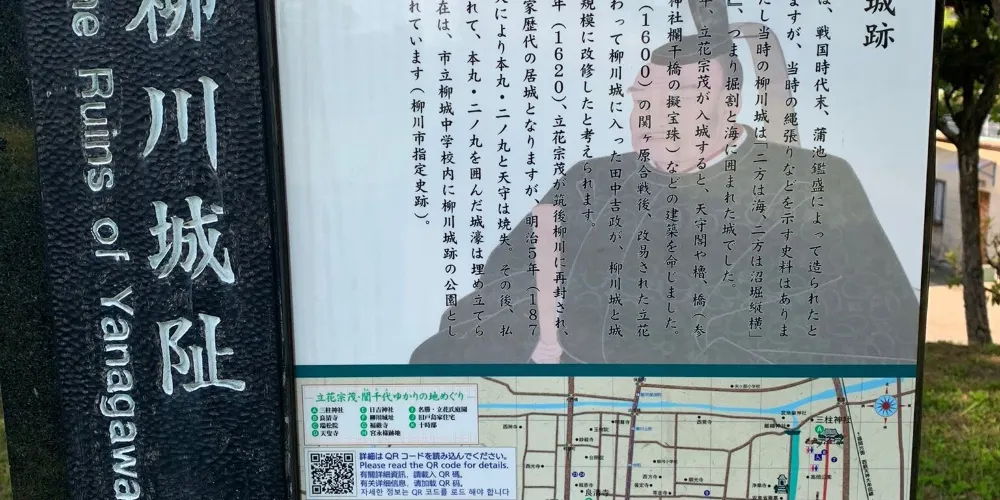 柳川城址
The Ruins of Yanagawa
城跡
は、戦国時代末、蒲池鑑盛によって造られたと
ますが、当時の縄張りなどを示す史料はありま
たし当時の柳川城は「二方は海、二方は沼堀縦横」
』、つまり掘割と海に囲まれた城でした。
年、立花宗茂が入城すると、天守閣や櫓、橋(参
神社欄干橋の擬宝珠)などの建築を命じました。
(1600)の関ヶ原合戦後、改易された立花
わって柳川城に入った田中吉政が、柳川城と城
規模に改修したと考えられます。
年(1620)、立花宗茂が筑後柳川に再封され、
家歴代の居城となりますが、明治5年(187
火により本丸・二ノ丸と天守は焼失。その後、私
れて、本丸・二ノ丸を囲んだ城濠は埋め立てら
在は、市立柳城中学校内に柳川城跡の公園とし
れています(柳川市指定史跡)。
立花宗茂・誾千代ゆかりの地めぐり
A 三柱神社
B 良清寺
C 瑞松院
D 天叟寺
E 日吉神社
F 柳川城址
G 福厳寺
H 宮永様跡地
I 名勝・立花氏庭園
J 旧戸島家住宅
K 十時邸
詳細はQRコードを読み込んでください。
Please read the QR code for details.
有關詳細資訊，請載入 QR 碼。
有关详细信息，请加载 QR 码。
자세한 정보는 QR 코드를 로드 해야 합니다
三柱神社
良清寺